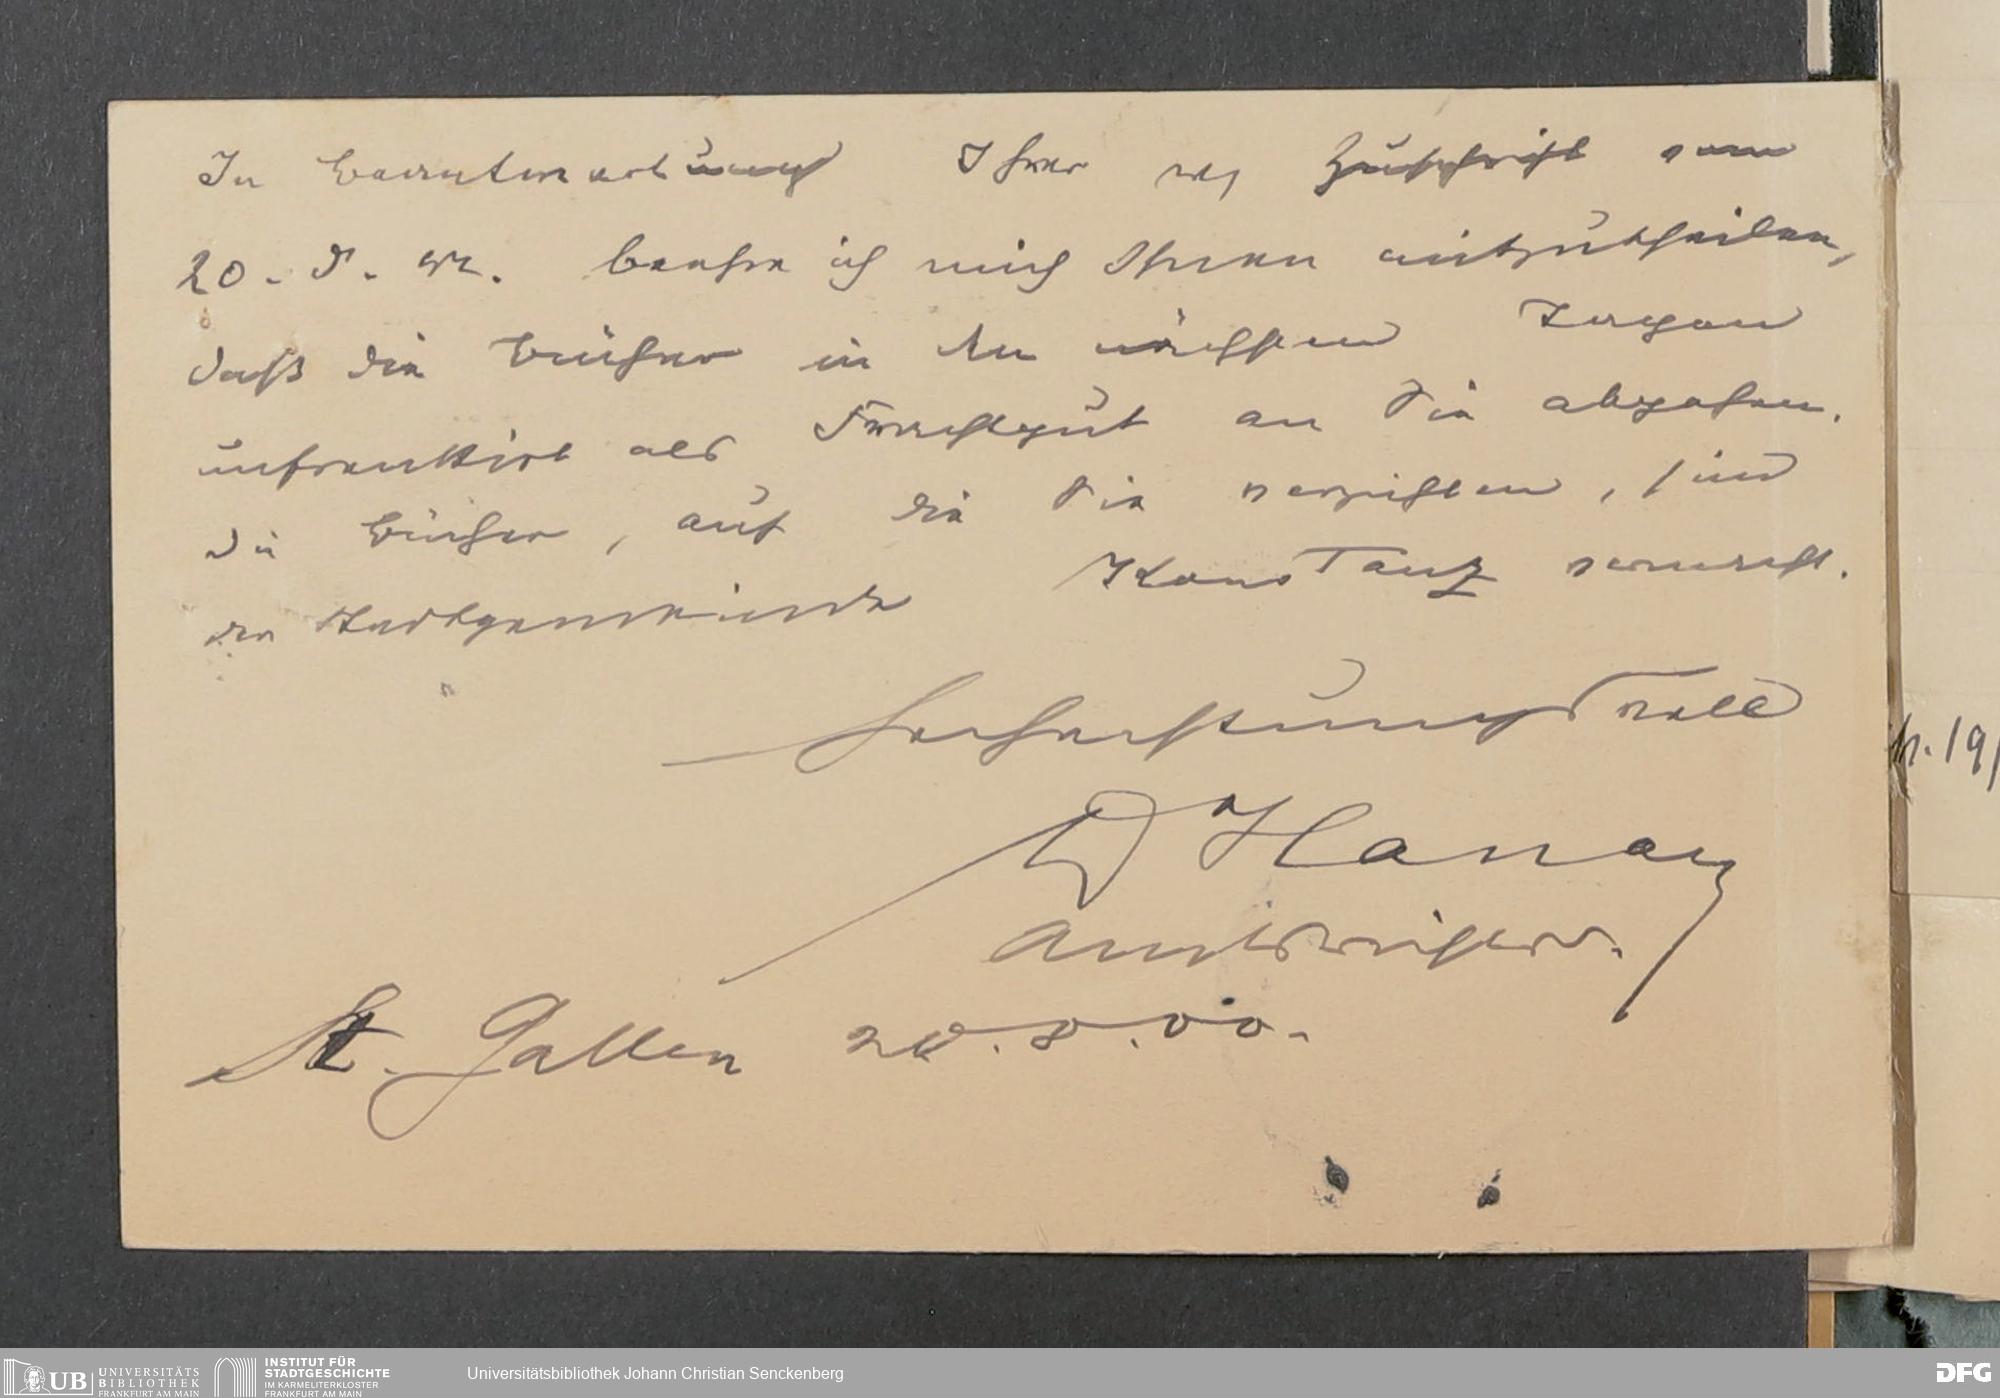 In Beantwortung Ihrer w. Zuschrift vom
20. d. M. beehre ich mich Ihnen mitzutheilen,
daß die Bücher in den nächsten Tagen
unfrankirt als Frachtgut an Sie abgehen.
Die Bücher, auf die Sie verzichten, sind
der Stadtgemeinde Konstanz vermacht.
Hochachtungsvoll
Hanau
Amtsrichter.
St. Gallen 20.8.00.
h. 19
UB UNIVERSITÄTS
BIBLIOTHEK
FRANKFURT AM MAIN
INSTITUT FÜR
STADTGESCHICHTE
IM KARMELITERKLOSTER
FRANKFURT AM MAIN
Universitätsbibliothek Johann Christian Senckenberg
DFG